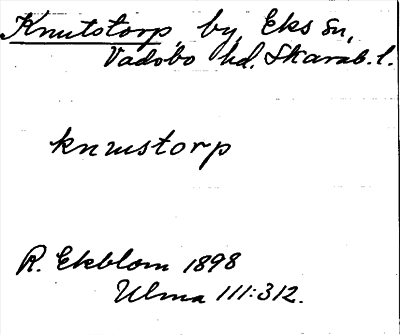 Knutstorp, by, Eks sn,
Vadsbo hd. Skarab. l.
knustorp
R. Ekblom 1898
Ulma 111:312.